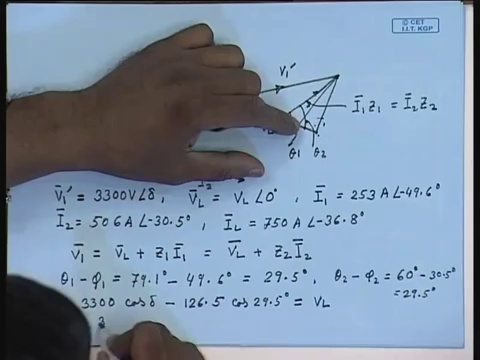 © CET
I.I.T. KGP
V̄₁′
Ī₁Z₁ = Ī₂Z₂
θ₁ θ₂
V̄₁′ = 3300V∠δ, V̄_L = V_L∠0°, Ī₁ = 253 A∠-49.6°
Ī₂ = 506 A∠-30.5°, Ī_L = 750 A∠-36.8°
V̄₁ = V̄_L + Z₁Ī₁ = V̄_L + Z₂Ī₂
θ₁ - φ₁ = 79.1° - 49.6° = 29.5°, θ₂ - φ₂ = 60° - 30.5°
= 29.5°
3300 cos δ - 126.5 cos 29.5° = V_L